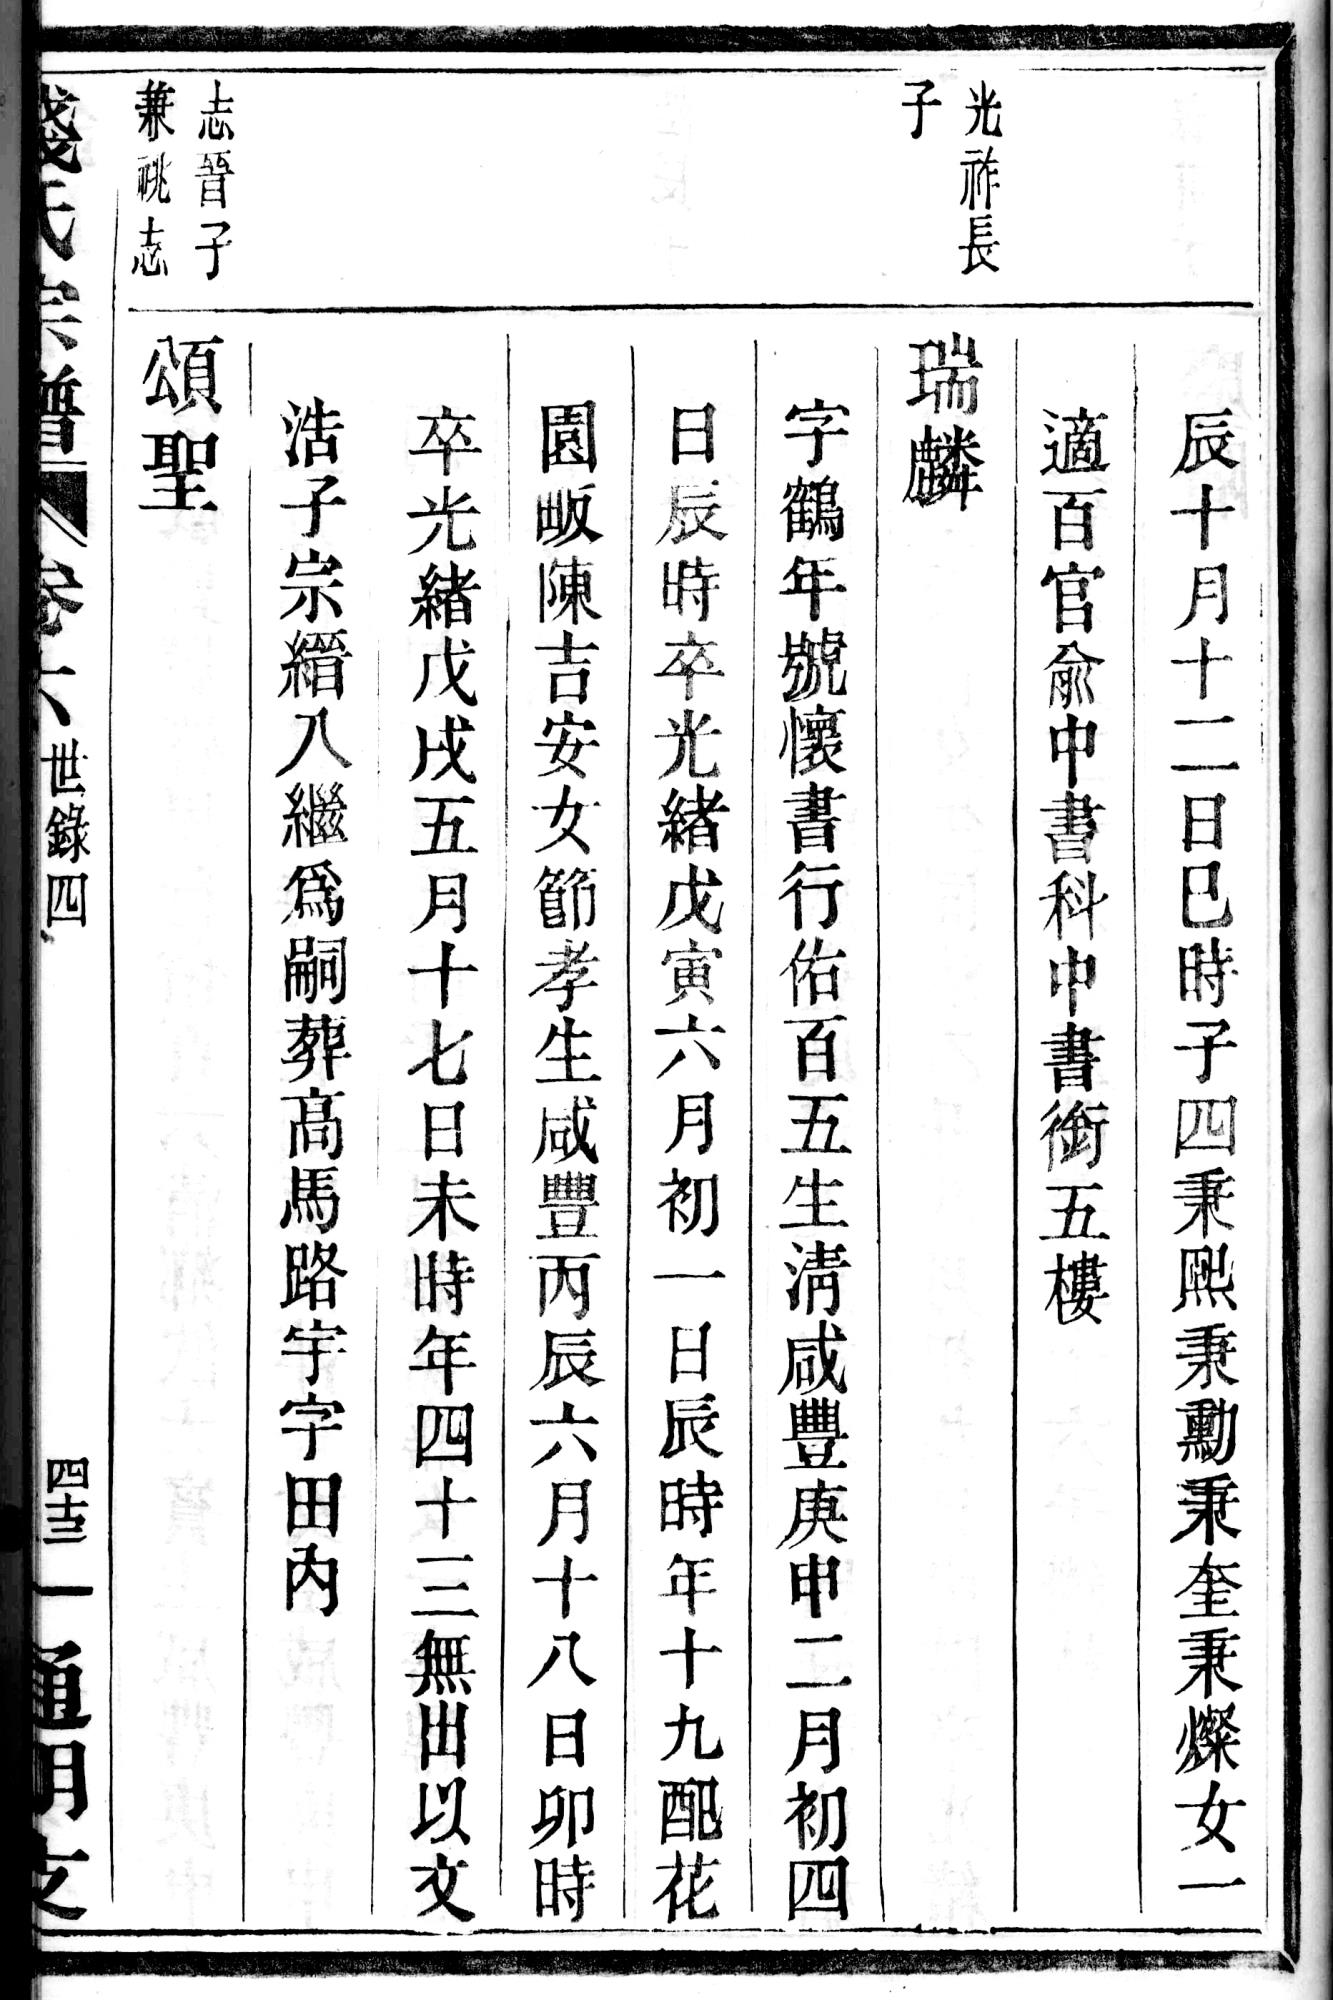 辰十月十二日巳時子四秉熙秉勳秉奎秉燦女一
適百官俞中書科中書銜五樓
光祚長
子
瑞麟
字鶴年號懷書行佑百五生淸咸豐庚申二月初四
日辰時卒光緖戊寅六月初一日辰時年十九配花
園畈陳吉安女節孝生咸豐丙辰六月十八日卯時
卒光緖戊戌五月十七日未時年四十三無出以文
浩子宗縉入繼爲嗣葬高馬路宇字田內
志晉子
兼祧志
頌聖
錢氏宗譜 卷六 世錄四 四十三 一 通明支